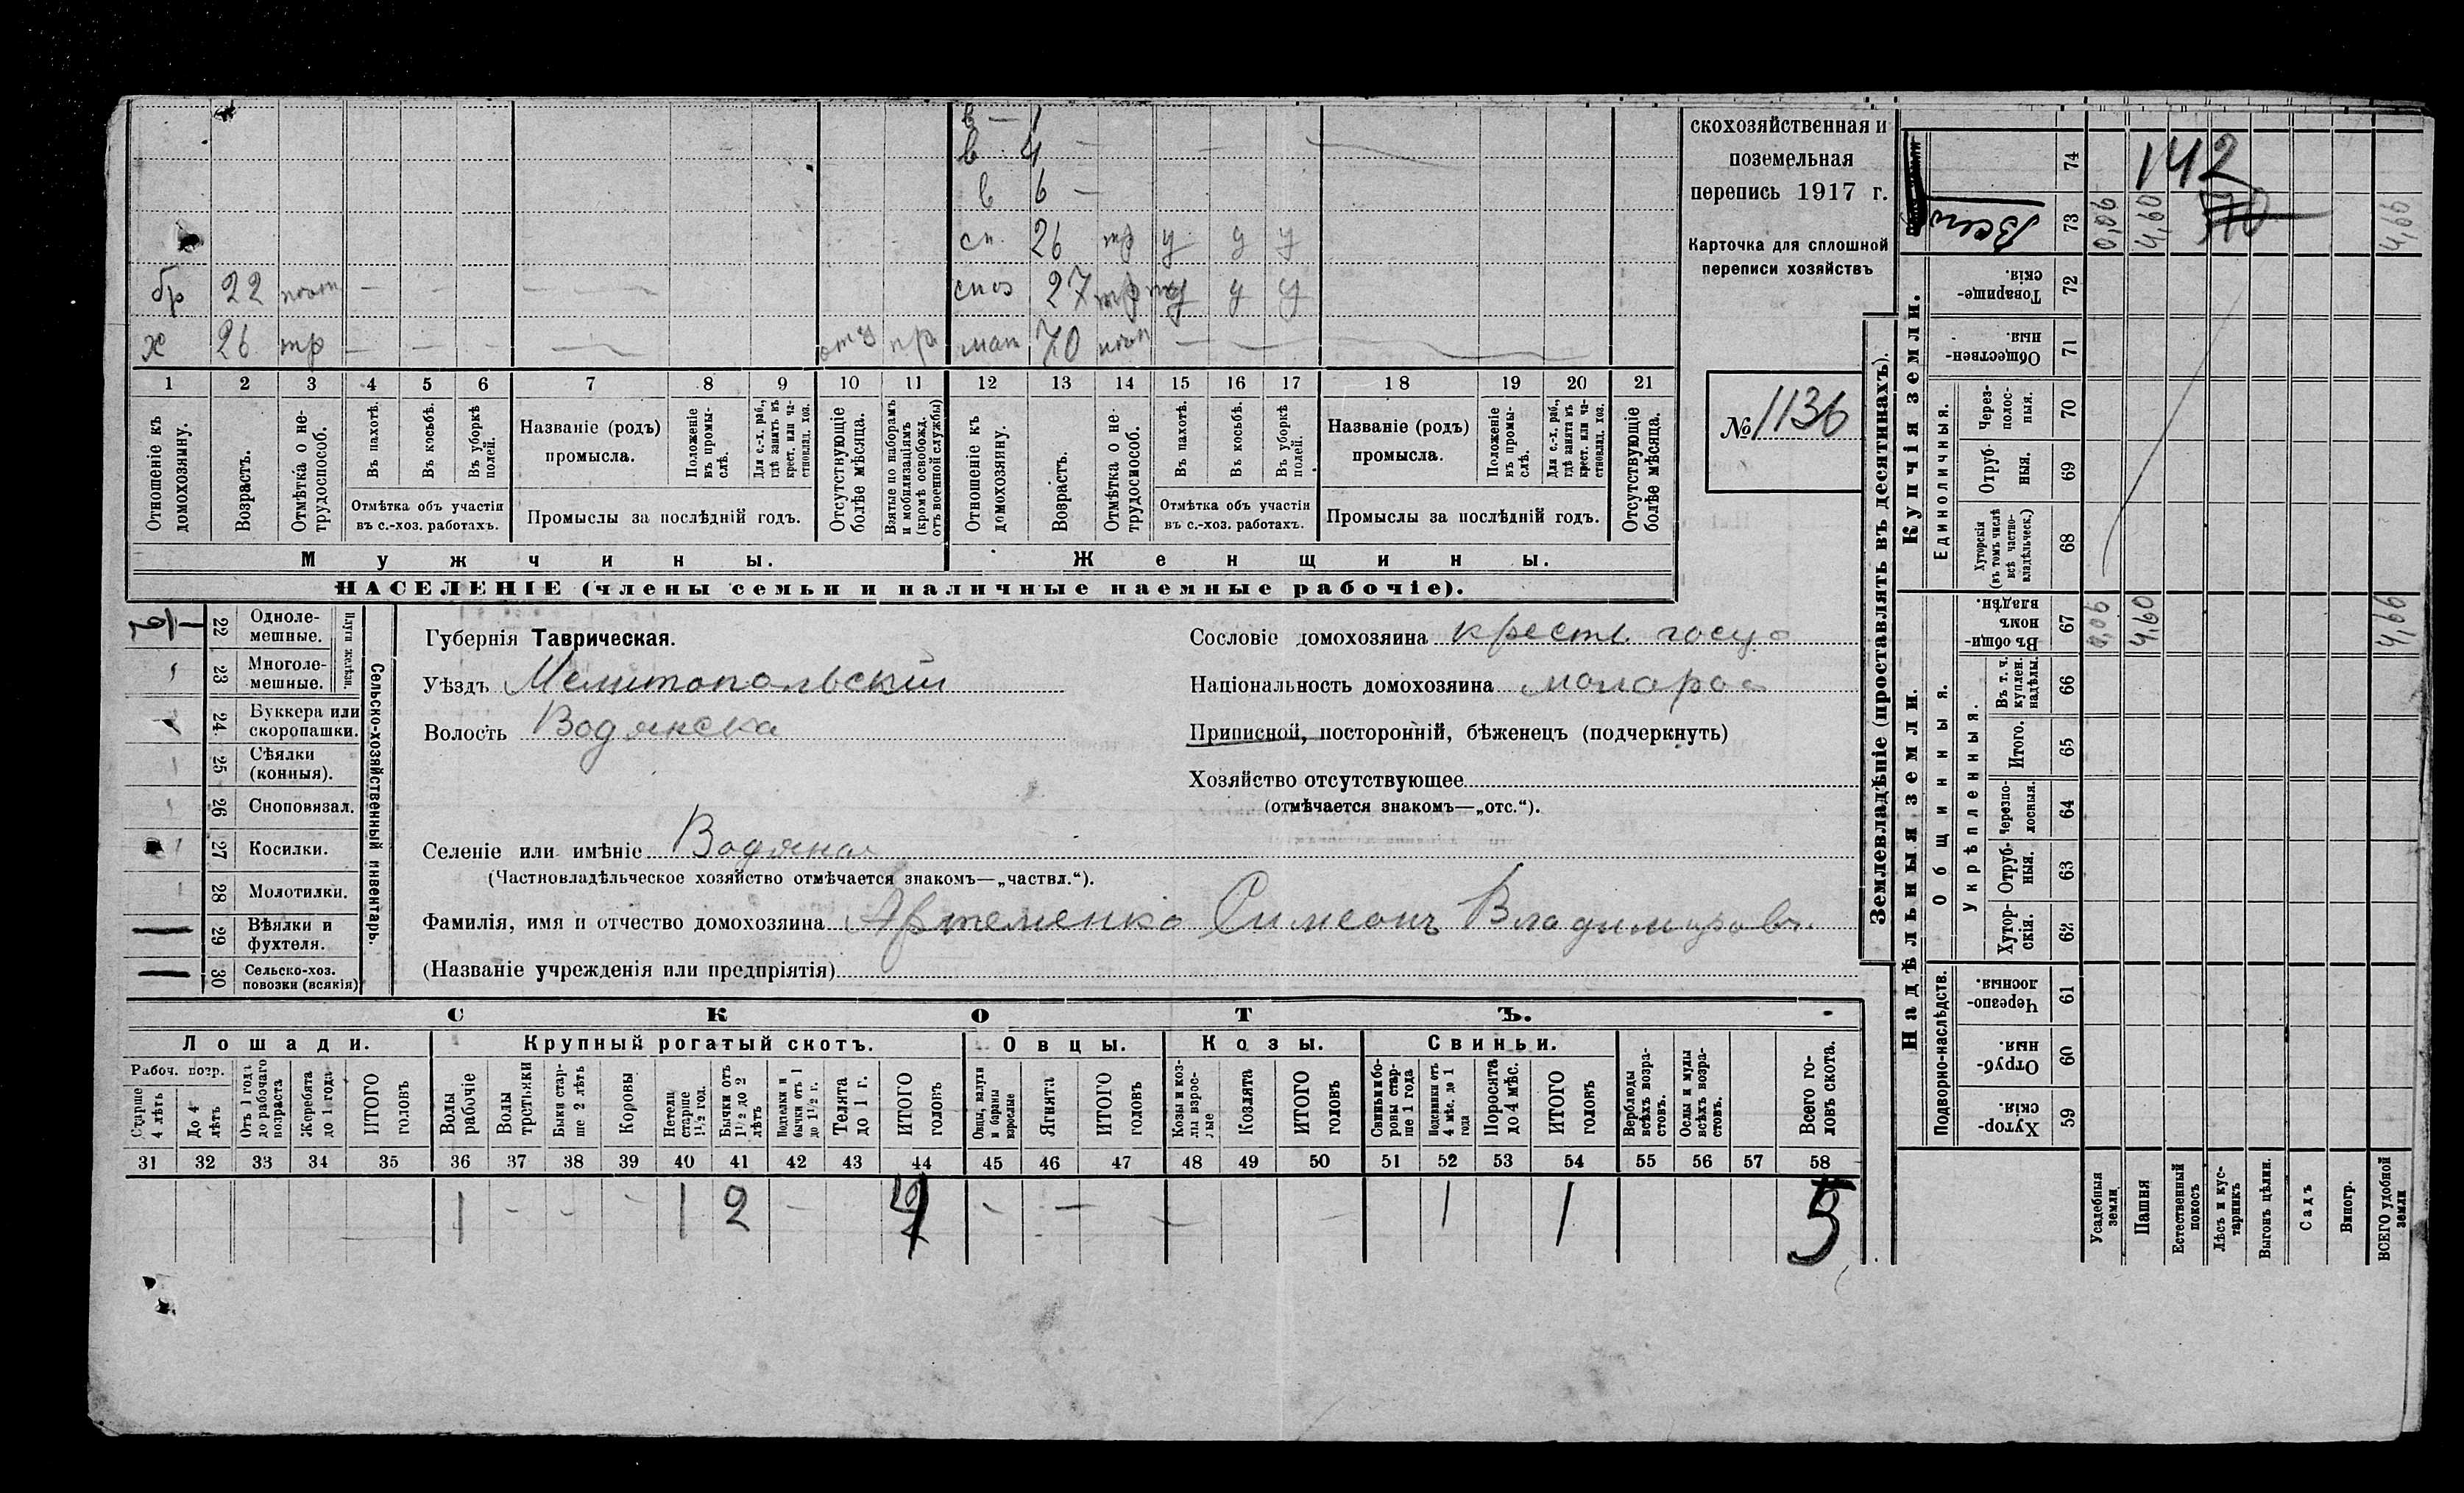 в — 1
в 4 —
в 6 —
сп. 26 тр у у у
бр 22 — — — споз 27 у у у
х 26 тр — — — отч пр мат 70 —
1 2 3 4 5 6 7 8 9 10 11 12 13 14 15 16 17 18 19 20 21
Отношеніе къ домохозяину.
Возрастъ.
Отмѣтка о нетрудоспособ.
Въ пахотѣ.
Въ косьбѣ.
Въ уборкѣ полей.
Отмѣтка объ участіи въ с.-хоз. работахъ.
Названіе (родъ) промысла.
Положеніе въ промыслѣ.
Для с.-х. раб., гдѣ занятъ въ крест. или частновлад. хоз.
Промыслы за послѣдній годъ.
Отсутствующіе болѣе мѣсяца.
Взятые по наборамъ и мобилизаціямъ (кромѣ освобожд. отъ военной службы)
Отношеніе къ домохозяину.
Возрастъ.
Отмѣтка о не трудоспособ.
Въ пахотѣ.
Въ косьбѣ.
Въ уборкѣ полей.
Отмѣтка объ участіи въ с.-хоз. работахъ.
Названіе (родъ) промысла.
Положеніе въ промыслѣ.
Для с.-х. раб., гдѣ занята въ крест. или частновлад. хоз.
Промыслы за послѣдній годъ.
Отсутствующіе болѣе мѣсяца.
Мужчины. Женщины.
НАСЕЛЕНІЕ (члены семьи и наличные наемные рабочіе).
скохозяйственная и
поземельная
перепись 1917 г.
Карточка для сплошной
переписи хозяйствъ
№ 1136
22 Одноле-мешные.
23 Многоле-мешные.
Плуги желѣзн.
24 Буккера или скоропашки.
25 Сѣялки (конныя).
26 Сноповязал.
27 Косилки.
28 Молотилки.
29 Вѣялки и фухтеля.
30 Сельско-хоз. повозки (всякія)
Сельско-хозяйственный инвентарь.
Губернія Таврическая.
Уѣздъ Мелитопольскій
Волость Водянска
Селеніе или имѣніе Водяная
(Частновладѣльческое хозяйство отмѣчается знакомъ—„частвл.“).
Фамилія, имя и отчество домохозяина Артеменко Симеонъ Владимировъ.
(Названіе учрежденія или предпріятія)
Сословіе домохозяина крестл. госуд
Національность домохозяина малорос
Приписной, посторонній, бѣженецъ (подчеркнуть)
Хозяйство отсутствующее
(отмѣчается знакомъ—„отс.“).
СКОТЪ.
Лошади. Крупный рогатый скотъ. Овцы. Козы. Свиньи.
Рабоч. возр.
Старше 4 лѣтъ
До 4 лѣтъ
Отъ 1 года до рабочаго возраста
Жеребята до 1 года
ИТОГО головъ
Волы рабочіе
Волы третьяки
Быки старше 2 лѣтъ
Коровы
Нетели старше 1½ год.
Бычки отъ 1½ до 2 лѣтъ
Подтелки и бычки отъ 1 до 1½ г.
Телята до 1 г.
ИТОГО головъ
Овцы, валухи и бараны взрослые
Ягнята
ИТОГО головъ
Козы и козлы взрослые
Козлята
ИТОГО головъ
Свиньи и боровы старше 1 года
Подсвинки отъ 4 мѣс. до 1 года
Поросята до 4 мѣс.
ИТОГО головъ
Верблюды всѣхъ возрастовъ.
Ослы и мулы всѣхъ возрастовъ.
Всего головъ скота.
31 32 33 34 35 36 37 38 39 40 41 42 43 44 45 46 47 48 49 50 51 52 53 54 55 56 57 58
1 - - - 1 2 - 4 - - - - 1 1 5
Землевладѣніе (проставлять въ десятинахъ).
Надѣльныя земли. Купчія земли.
Подворно-наслѣдств.
Общинныя.
Укрѣпленныя.
Единоличныя.
74 142
Всего 73 0,06 4,60 4,66
Товарищескія. 72
Общественныя. 71
Черезполосныя. 70
Отрубныя. 69
Хуторскія (въ томъ числѣ всѣ частновладѣльческ.) 68
Въ общинномъ владѣн. 67 0,06 4,60 4,66
Въ т. ч. куплен. надѣлы. 66
Итого. 65
Черезполосныя. 64
Отрубныя. 63
Хуторскія. 62
Черезполосныя. 61
Отрубныя. 60
Хуторскія. 59
Усадебныя земли.
Пашня
Естественный покосъ
Лѣсъ и кустарникъ
Выгонъ цѣлин.
Садъ
Виногр.
ВСЕГО удобной земли